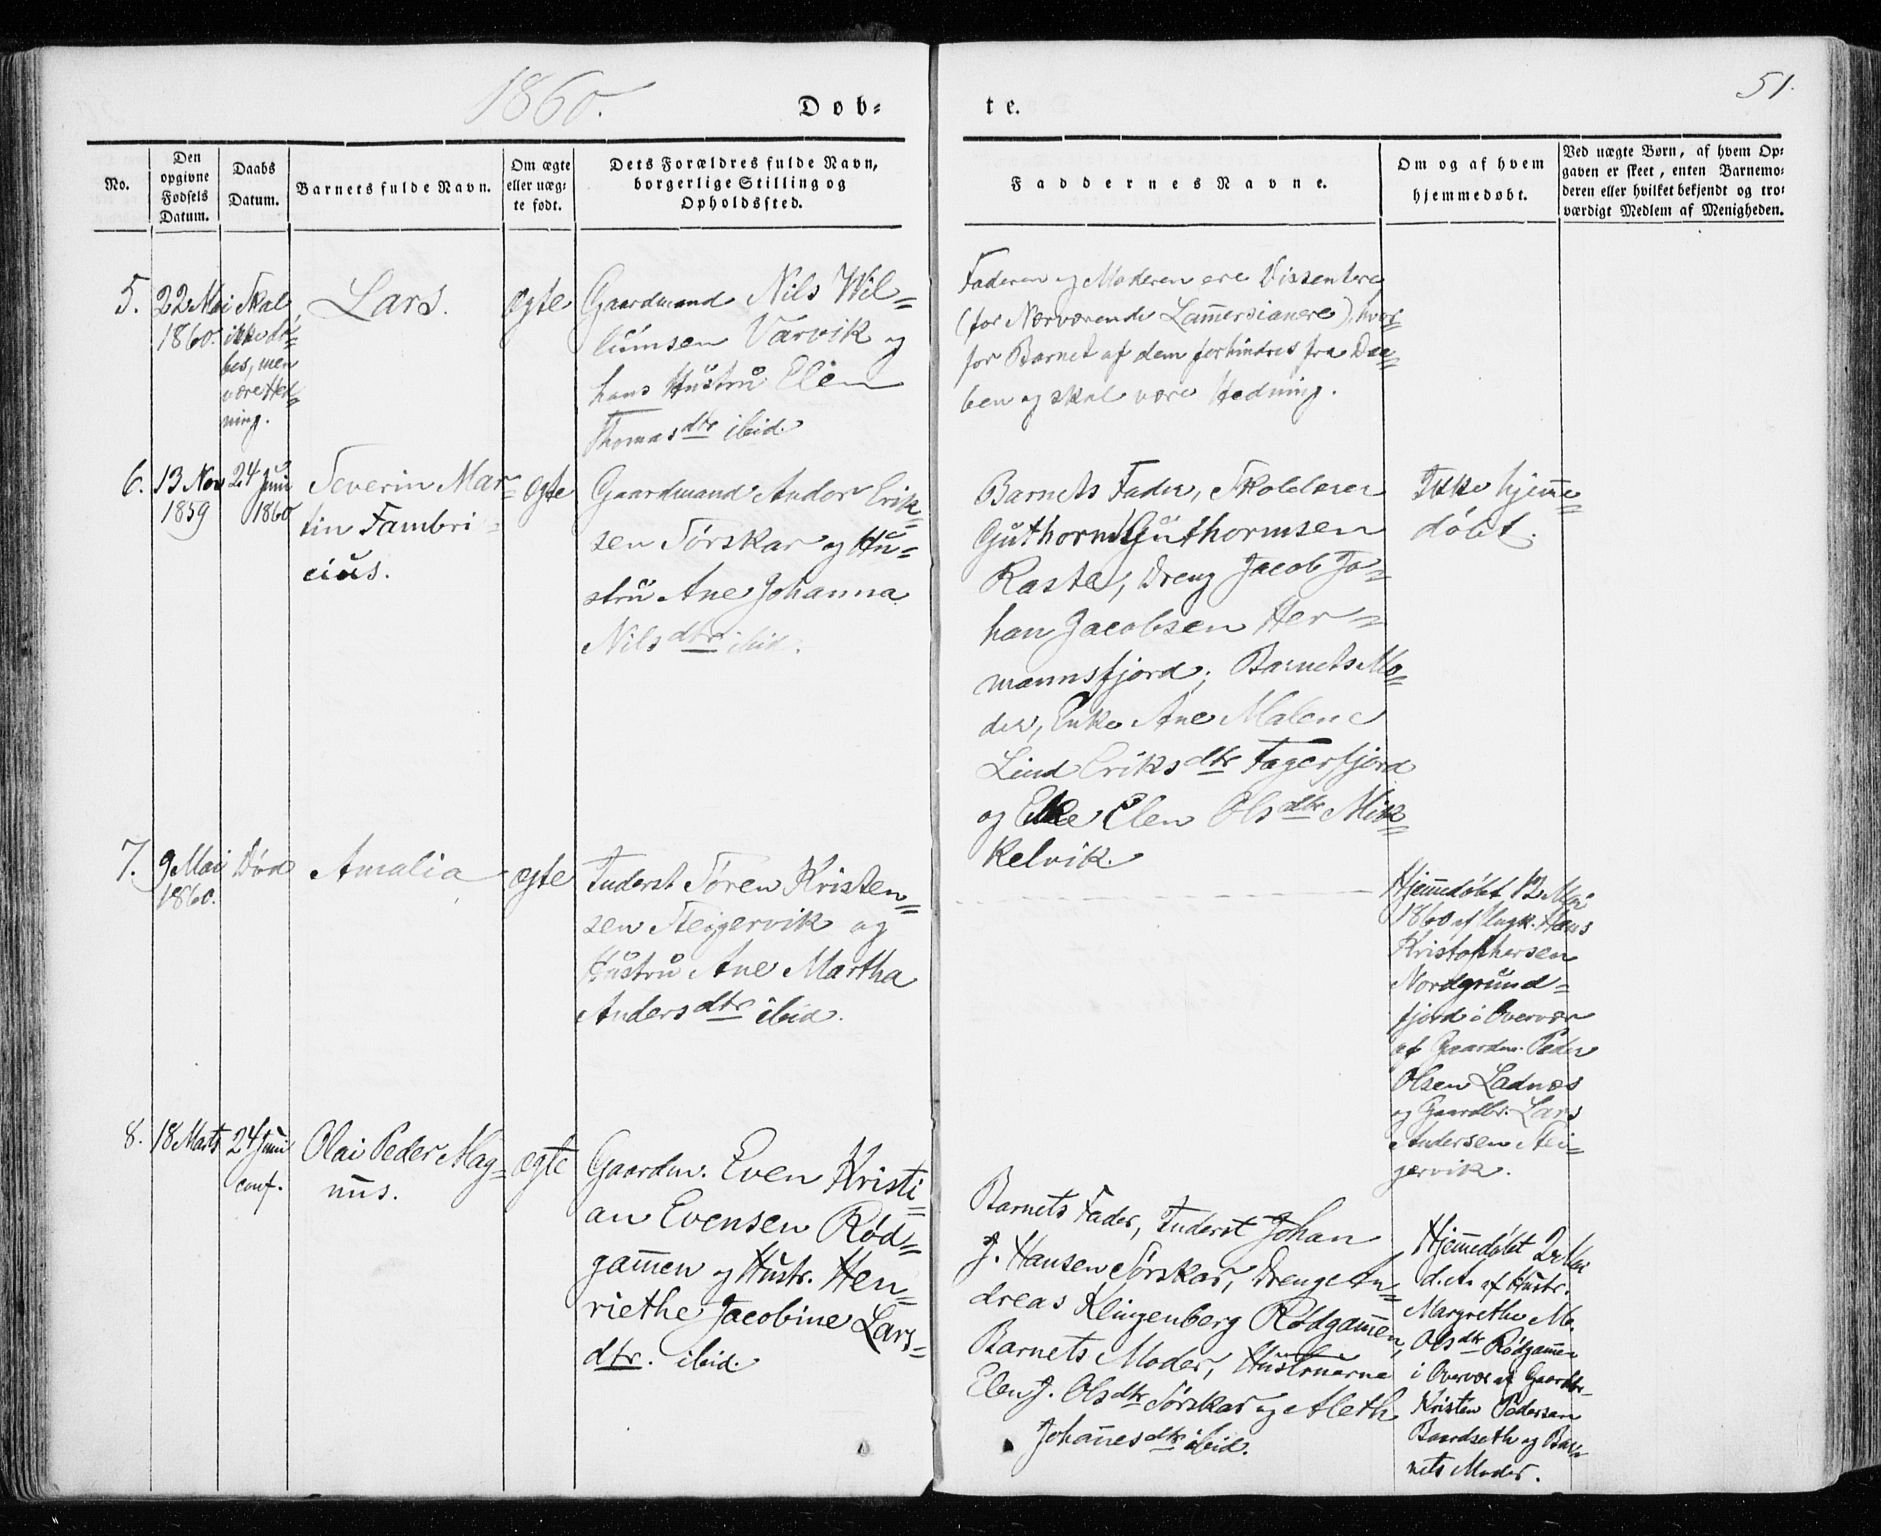 1860.
Døb-
te.
51.
No.
Den
opgivne
Fødsels
Datum.
Daabs
Datum.
Barnets fulde Navn.
Om ægte
eller uæg-
te født.
Dets Forældres fulde Navn,
borgerlige Stilling og
Opholdssted.
Faddernes Navne.
Om og af hvem
hjemmedøbt.
Ved uægte Børn, af hvem Op-
gaven er skeet, enten Barnemo-
deren eller hvilket bekjendt og tro-
værdigt Medlem af Menigheden.
5.
22 Mai
1860.
Skal
ikke dø-
bes, men
være Hed-
ning.
Lars.
ægte
Gaardmand Nils Wil-
lumsen Varvik og
hans Hustru Elen
Thomasdtr ibid.
Faderen og Moderen ere Dissentere
(for Nærværende Lam̄ersianere), hvor-
for Barnet af dem forhindres fra Daa-
ben og skal være Hedning.
6.
13 Nov
1859
24 Juni
1860
Severin Mar-
tin Fambri-
cius.
ægte
Gaardmand Andor Erik-
sen Sørskar og Hu-
stru Ane Johanna
Nilsdtr ibid.
Barnets Fader, Skolelærer
Guthorm Guthormsen
Rasta, Dreng Jacob Jo-
han Jacobsen Her-
mannsfjord; Barnets Mo-
der, Enke Ane Malene
Lind Eriksdtr Fagerfjord
og Elen Olsdtr Mik-
kelvik.
Ikke hjem̄e-
døbt.
7.
9 Mai
1860.
Død
Amalia
ægte
Inderst Søren Kristen-
sen Steigervik og
Hustru Ane Martha
Andersdtr ibid.
Hjem̄edøbt 12 Mai
1860 af Ungk. Hans
Kristophersen
Nordgrund-
fjord i Overvær
af Gaardm. Peder
Olsen Ladnæs
og Gaardbr. Lars
Andersen Stei-
gervik.
8.
18 Marts
24 Juni
conf.
Olai Peder Mag-
nus.
ægte
Gaardm. Even Kristi-
an Evensen Rød-
gam̄en og Hustr. Hen-
riethe Jacobine Lars-
dtr. ibid.
Barnets Fader, Inderst Johan
J. Hansen Sørskar, Dreng An-
dreas Klingenberg Rødgam̄en,
Barnets Moder, Hustruerne
Elen J. Olsdtr Sørskar og Aleth
Johan̄esdtr ibid.
Hjem̄edøbt 2 Mai
d. A. af Hustr.
Margrethe M.
Olsdtr Rødgam̄en
i Overvær af Gaardbr.
Kristen Pedersen
Baardseth og Bar-
nets Moder.